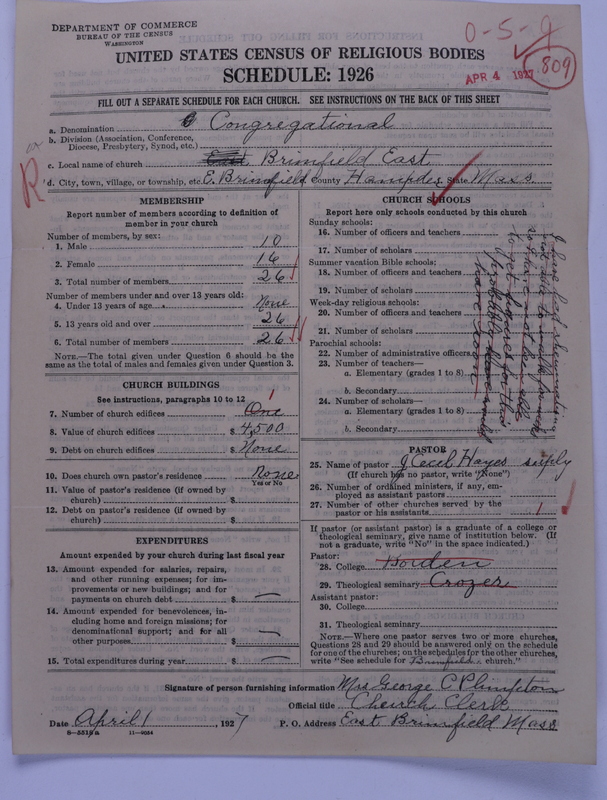 DEPARTMENT OF COMMERCE
BUREAU OF THE CENSUS
WASHINGTON
0-5-9
APR 4 1927
809
UNITED STATES CENSUS OF RELIGIOUS BODIES
SCHEDULE: 1926
FILL OUT A SEPARATE SCHEDULE FOR EACH CHURCH. SEE INSTRUCTIONS ON THE BACK OF THIS SHEET
a. Denomination Congregational
b. Division (Association, Conference, Diocese, Presbytery, Synod, etc.)
c. Local name of church East Brimfield East
d. City, town, village, or township, etc. E. Brimfield County Hampden State Mass
R
MEMBERSHIP
Report number of members according to definition of
member in your church
Number of members, by sex:
1. Male 10
2. Female 16
3. Total number of members 26
Number of members under and over 13 years old:
4. Under 13 years of age None
5. 13 years old and over 26
6. Total number of members 26
NOTE.—The total given under Question 6 should be the
same as the total of males and females given under Question 3.
CHURCH BUILDINGS
See instructions, paragraphs 10 to 12
7. Number of church edifices One 1
8. Value of church edifices $ 4,500
9. Debt on church edifices $ None
10. Does church own pastor's residence None
Yes or No
11. Value of pastor's residence (if owned by
church) $
12. Debt on pastor's residence (if owned by
church) $
EXPENDITURES
Amount expended by your church during last fiscal year
13. Amount expended for salaries, repairs,
and other running expenses; for im-
provements or new buildings; and for
payments on church debt $ —
14. Amount expended for benevolences, in-
cluding home and foreign missions; for
denominational support; and for all
other purposes $ —
15. Total expenditures during year $ —
CHURCH SCHOOLS
Report here only schools conducted by this church
Sunday schools:
16. Number of officers and teachers
17. Number of scholars
Summer vacation Bible schools:
18. Number of officers and teachers
19. Number of scholars
Week-day religious schools:
20. Number of officers and teachers
21. Number of scholars
Parochial schools:
22. Number of administrative officers
23. Number of teachers—
a. Elementary (grades 1 to 8)
b. Secondary
24. Number of scholars—
a. Elementary (grades 1 to 8)
b. Secondary
to get figures for this
PASTOR
25. Name of pastor J Cecil Hayes supply
(If church has no pastor, write "None")
26. Number of ordained ministers, if any, em-
ployed as assistant pastors
27. Number of other churches served by the
pastor or his assistants 1
If pastor (or assistant pastor) is a graduate of a college or
theological seminary, give name of institution below. (If
not a graduate, write "No" in the space indicated.)
Pastor:
28. College
29. Theological seminary Crozer
Assistant pastor:
30. College
31. Theological seminary
NOTE.—Where one pastor serves two or more churches,
Questions 28 and 29 should be answered only on the schedule
for one of the churches; on the schedules for the other churches,
write "See schedule for Brimfield church."
Signature of person furnishing information Mrs George C Plimpton
Official title Church Clerk
Date April 1, 1927 P. O. Address East Brimfield Mass
8-5518a 11-9034